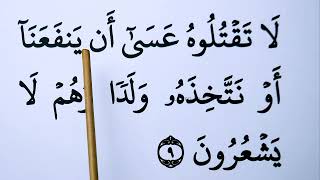 لَا تَقۡتُلُوهُ عَسَىٰٓ أَن يَنفَعَنَآ
أَوۡ نَتَّخِذَهُۥ وَلَدٗا وَهُمۡ لَا
يَشۡعُرُونَ ٩